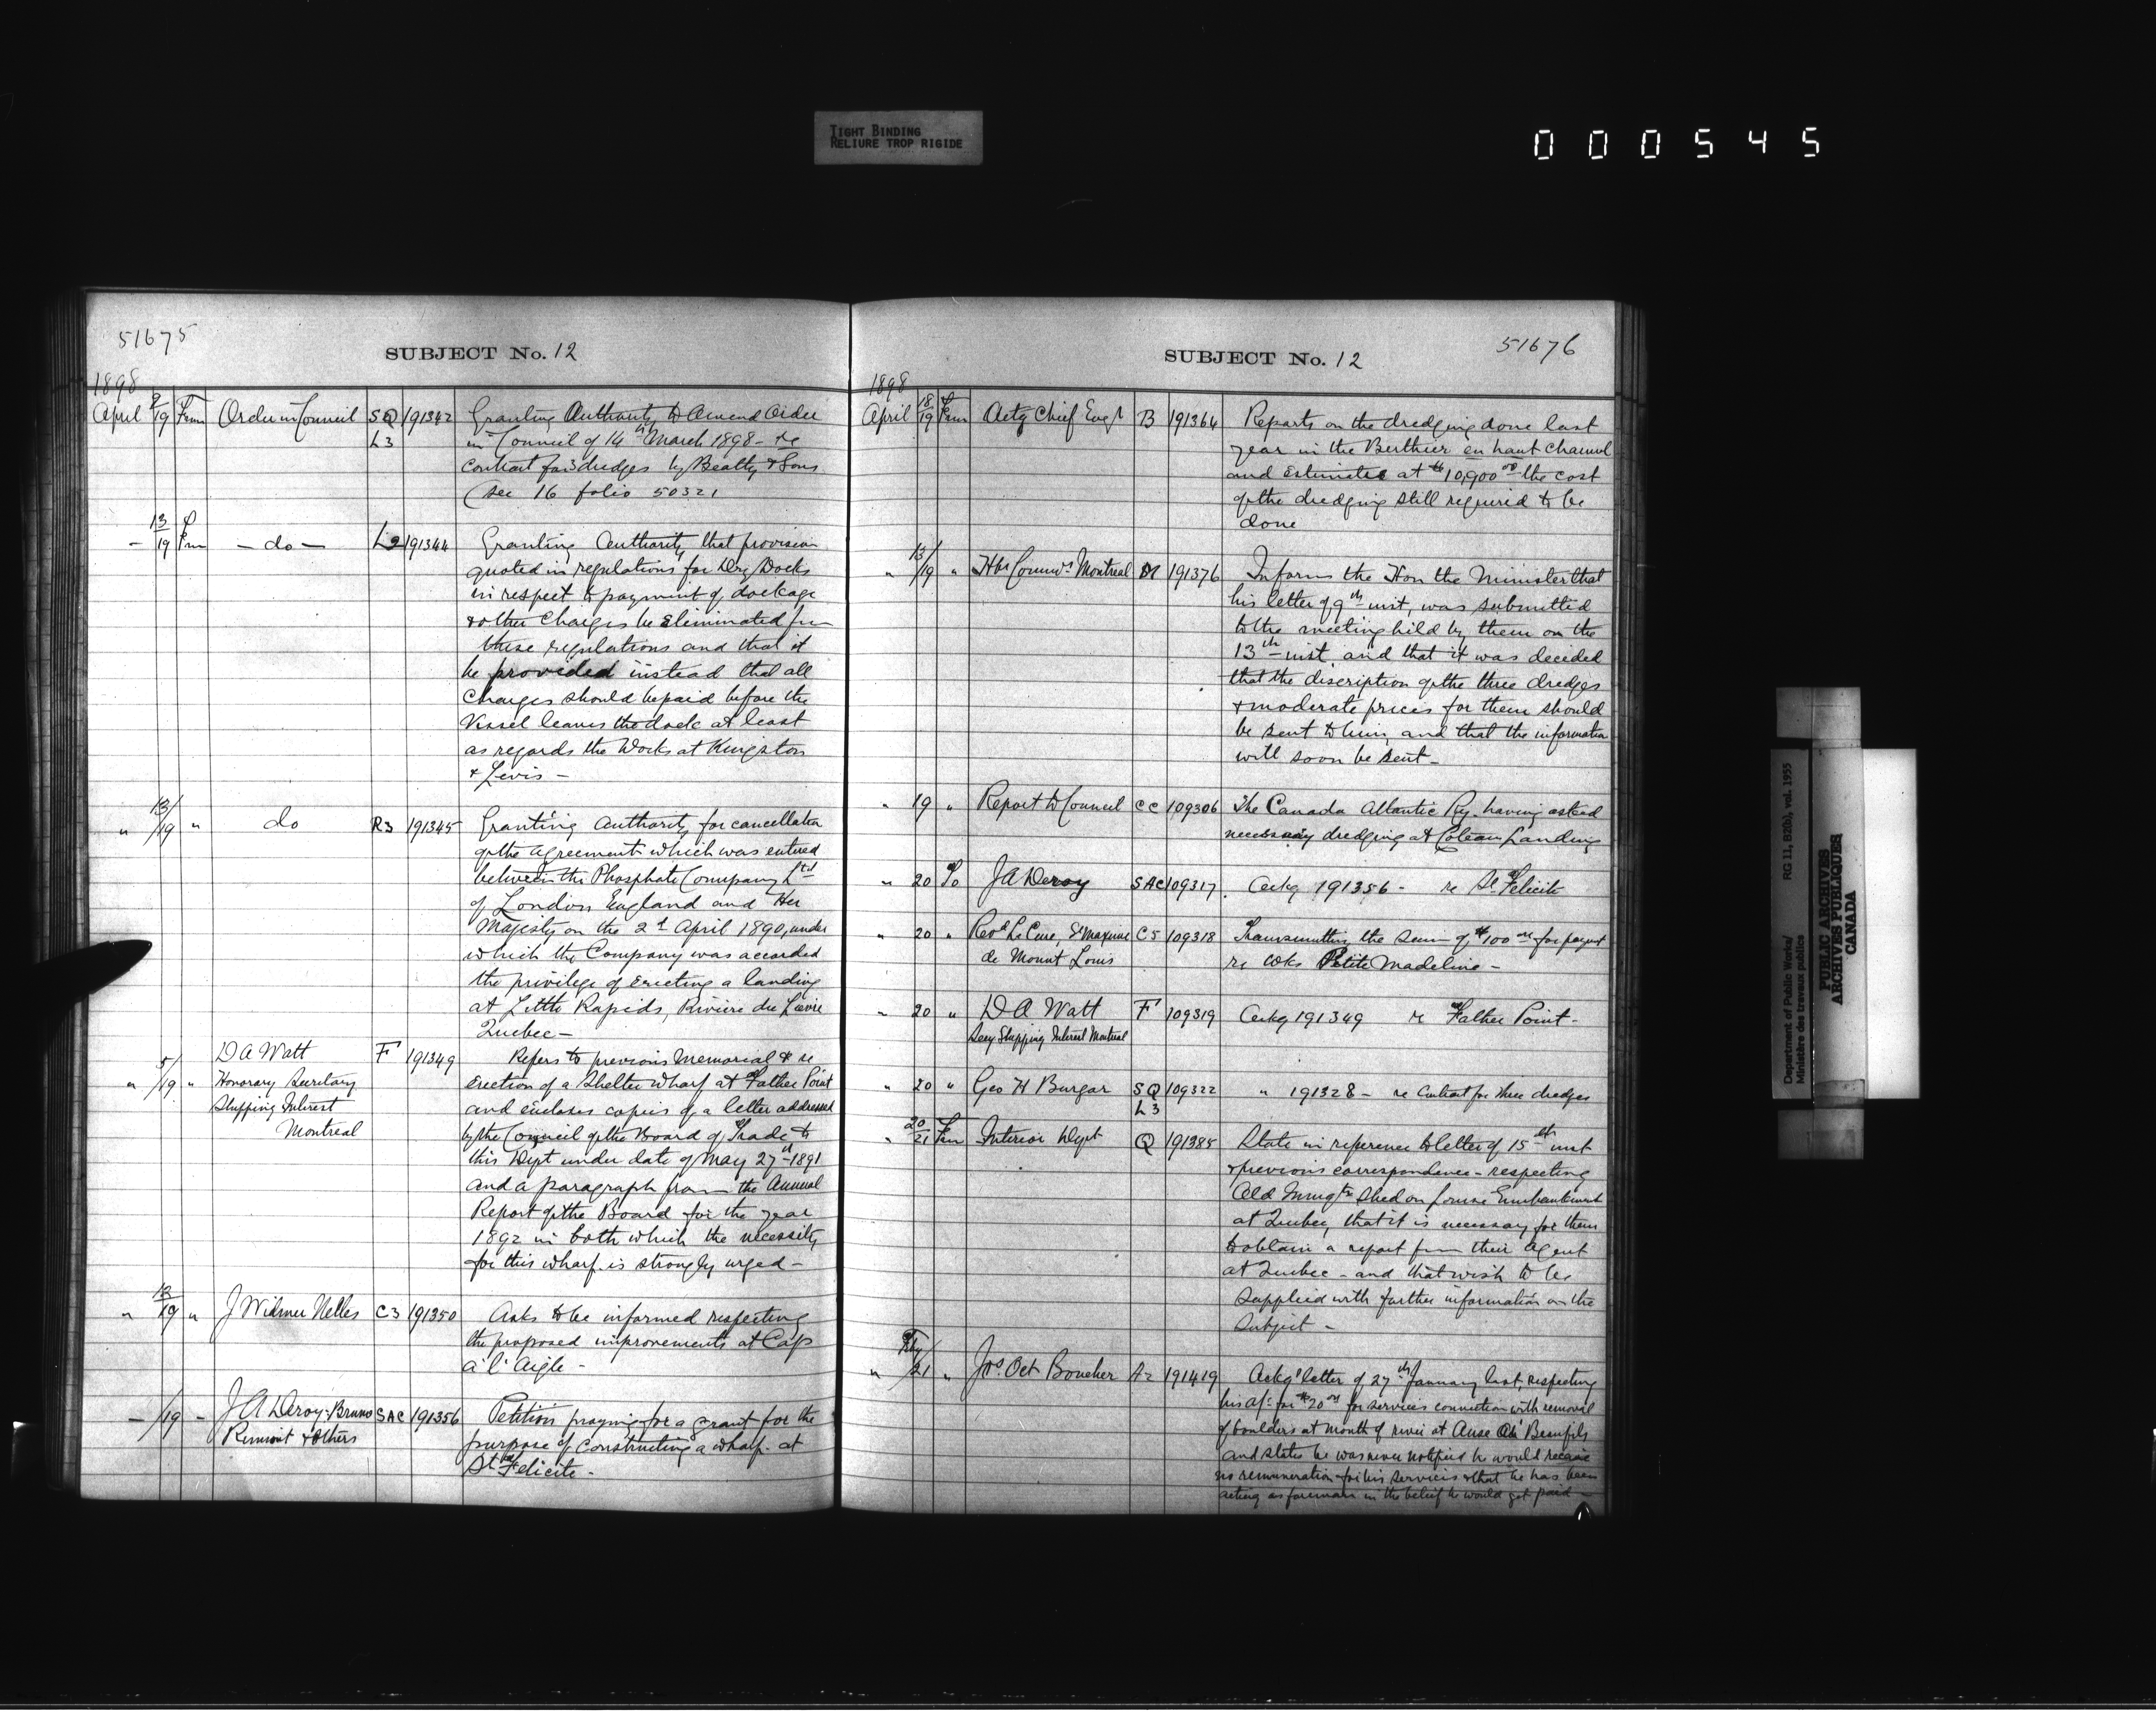 TIGHT BINDING
RELIURE TROP RIGIDE
000545
51675
SUBJECT No. 12
1898
April 9/19 From Order in Council SQ L3 191342 Granting Authority to Amend Order
in Council of 14th March 1898 - re
contract for 3 dredges by Beatty & Sons
(see 16 folio 50321
- 13/19 From - do - L2 191344 Granting Authority that provision
quoted in regulations for Dry Docks
in respect to payment of dockage
& other Charges be eliminated from
these regulations and that it
be provided instead that all
Charges should be paid before the
Vessel leaves the dock at least
as regards the Works at Kingston
& Levis -
" 13/19 " do R3 191345 Granting Authority for cancellation
of the agreement which was entered
between the Phosphate Company Ltd
of London England and Her
Majesty on the 2d April 1890, under
which the Company was accorded
the privilege of erecting a landing
at Little Rapids, Rivière du Lièvre
Quebec -
" 5/19 " D A Watt F 191349 Refers to previous Memorial & re
Honorary Secretary erection of a Shelter Wharf at Father Point
Shipping Interest and encloses copies of a letter addressed
Montreal by the Council of the Board of Trade to
this Dept under date of May 27th 1891
and a paragraph from the Annual
Report of the Board for the year
1892 in both which the necessity
for this wharf is strongly urged -
" 13/19 " J Widmer Nelles C3 191350 Asks to be informed respecting
the proposed improvements at Cap
à l'Aigle -
- /19 - J A Deroy-Bruno SAC 191356 Petition praying for a grant for the
& Others purpose of Constructing a wharf at
St Felicite -
51676
SUBJECT No. 12
1898
April 18/19 From Actg Chief Engr B 191364 Reports on the dredging done last
year in the Berthier en haut Channel
and Estimates at $10,900.00 the cost
of the dredging still required to be
done
" 13/19 " Hbr Commrs Montreal M 191376 Informs the Hon the Minister that
his letter of 9th inst, was submitted
to the meeting held by them on the
13th inst. and that it was decided
that the discription of the three dredges
& moderate prices for them should
be sent to him, and that the information
will soon be sent -
" 19 " Report to Council CC 109306 The Canada Atlantic Ry. having asked
necessary dredging at Coteau Landing
" 20 To J A Deroy SAC 109317 Ackg 191356 - re St Felicite
" 20 " Revd Le Cure, St Maxime C5 109318 Transmitting the sum of $100.00 for paymt
de Mount Louis re wks Petite Madeline -
" 20 " D A Watt F 109319 Ackg 191349 re Father Point -
Secy Shipping Interest Montreal
" 20 " Geo H Burgar SQ L3 109322 " 191328 - re Contract for three dredges
" 20/21 From Interior Dept Q 191385 State in reference to letter of 15th inst
& previous correspondence - respecting
Old Immgtn Shed on Louise Embankment
at Quebec, that it is necessary for them
to obtain a report from their Agent
at Quebec - and that wish to be
supplied with further information on the
Subject -
" Feby/21 " Jos. Oct Boucher A2 191419 Ackgs letter of 27th January last, respecting
his a/c for $20.00 for services connection with removal
of boulders at mouth of river at Anse au Beaufils
and states he was never notified he would receive
no remuneration for his services & that he has been
acting as foreman in the belief he would get paid -
Department of Public Works/
Ministère des travaux publics
RG 11, B2(b), vol. 1955
PUBLIC ARCHIVES
ARCHIVES PUBLIQUES
CANADA